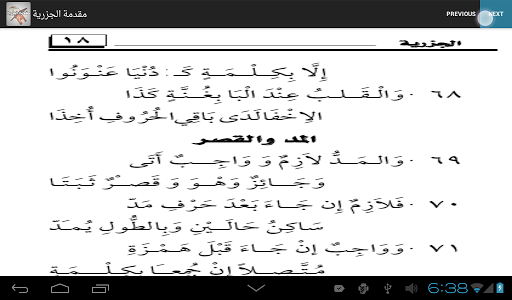 مقدمة الجزرية
PREVIOUS NEXT
الجزرية ١٨
إِلَّا بِكِلْمَةٍ كَـ: دُنْيَا عَنْوَنُوا
٦٨ . وَالْقَلْبُ عِنْدَ الْبَا بِغُنَّةٍ كَذَا
الاِخْفَا لَدَى بَاقِي الْحُرُوفِ أُخِذَا
المد والقصر
٦٩ . وَالْمَدُّ لاَزِمٌ وَ وَاجِبٌ أَتَى
وَجَائِزٌ وَهْوَ وَ قَصْرٌ ثَبَتَا
٧٠ . فَلاَزِمٌ إِن جَاءَ بَعْدَ حَرْفِ مَدّ
سَاكِنُ حَالَيْنِ وَبِالطُّولِ يُمَدّ
٧١ . وَوَاجِبٌ إنْ جَاءَ قَبْلَ هَمْزَةِ
مُتَّصِلاً إنْ جُمِعَا بِكِلْمَةِ
6:38